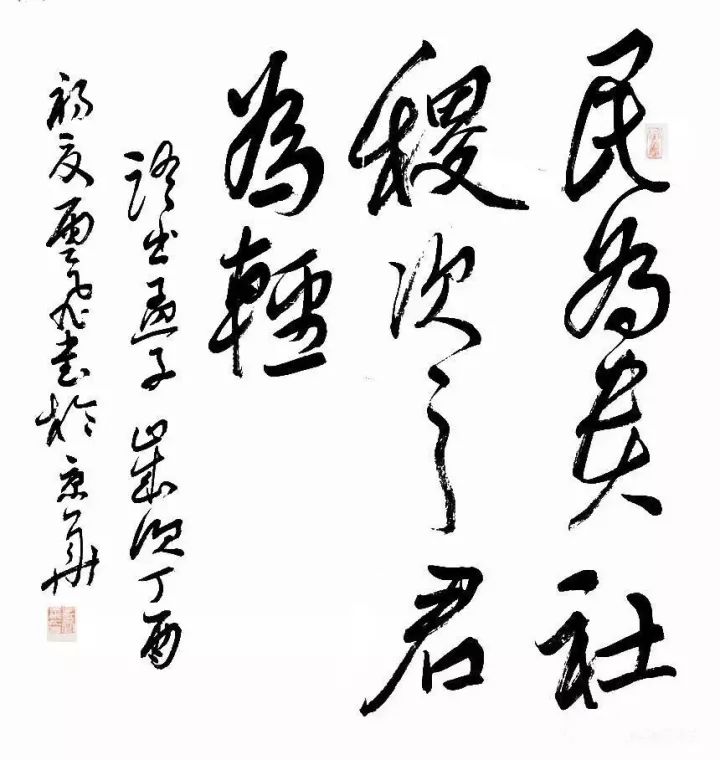 民為貴社
稷次之君
為輕
語出孟子 歲次丁酉
初夏雲飛書於京華